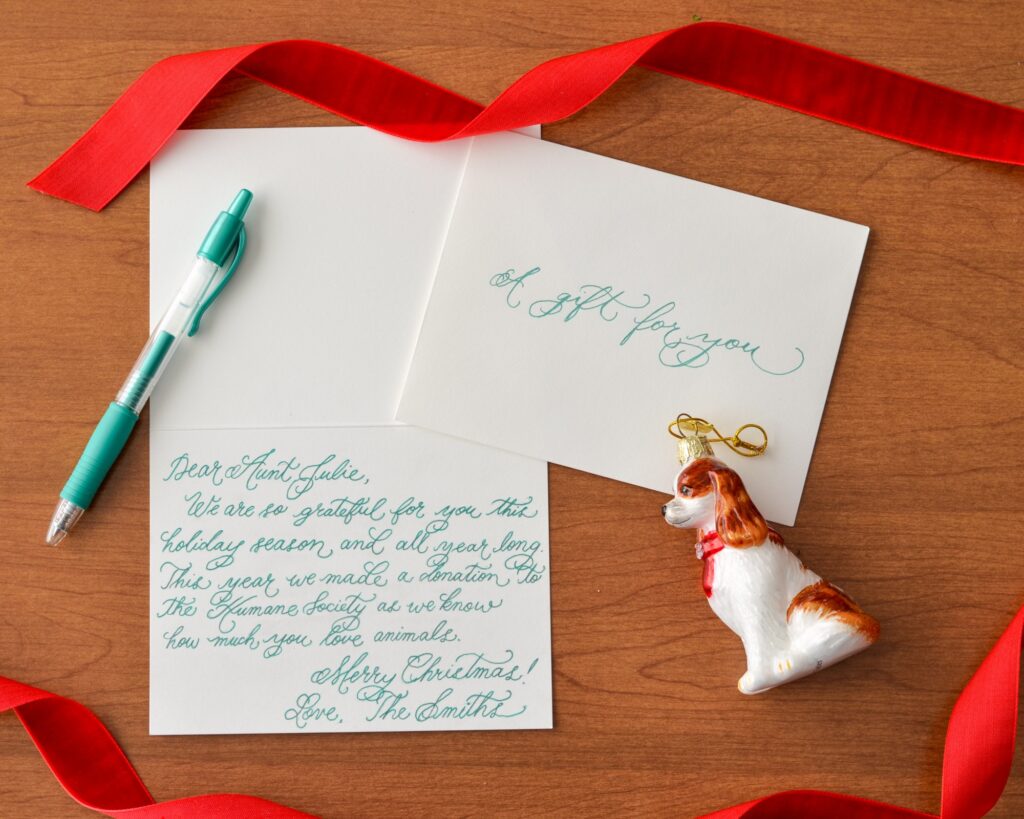 A gift for you
Dear Aunt Julie,
We are so grateful for you this
holiday season and all year long.
This year we made a donation to
the Humane Society as we know
how much you love animals.
Merry Christmas!
Love, The Smiths